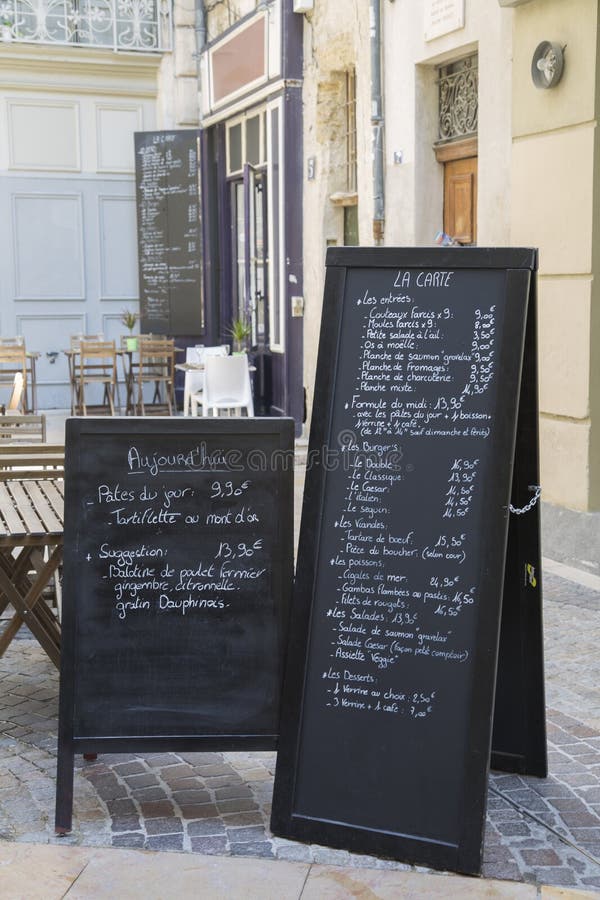 LA CARTE
Aujourd'hui
Pâtes du jour: 9,90€
- Tartiflette au mont d'or
+ Suggestion: 13,90€
- Balotine de poulet fermier
gingembre, citronnelle.
gratin Dauphinois.
LA CARTE
Les entrées:
- Couteaux farcis x 9: 9,00€
- Moules farcis x 9: 8,00€
- Petite salade à l'ail: 3,50€
- Os à moëlle: 9,00€
- Planche de saumon "gravelax"
- Planche de fromages: 9,50€
- Planche de charcuterie: 9,50€
- Planche mixte: 14,50€
Formule du midi: 13,90€
- avec les pâtes du jour + 1 boisson +
1 verrine + 1 café.
(de 12h à 14h sauf dimanche et fériés)
Les Burger's
- Le Double: 16,90€
- Le Classique: 13,90€
- Le Caesar: 14,50€
- L'italien: 14,50€
- Le seguin: 14,50€
Les Viandes:
- Tartare de boeuf: 15,50€
- Pièce du boucher: (selon cour)
Les poissons:
- Cigales de mer: 24,90€
- Gambas flambées au pastis: 16,50€
- Filets de rougets: 16,50€
Les Salades: 13,90€
- Salade de saumon "gravelax"
- Salade Caesar (façon petit comptoir)
- Assiette "Veggie"
Les Desserts:
- 1 Verrine au choix: 2,50€
- 3 Verrine + 1 café: 7,00€